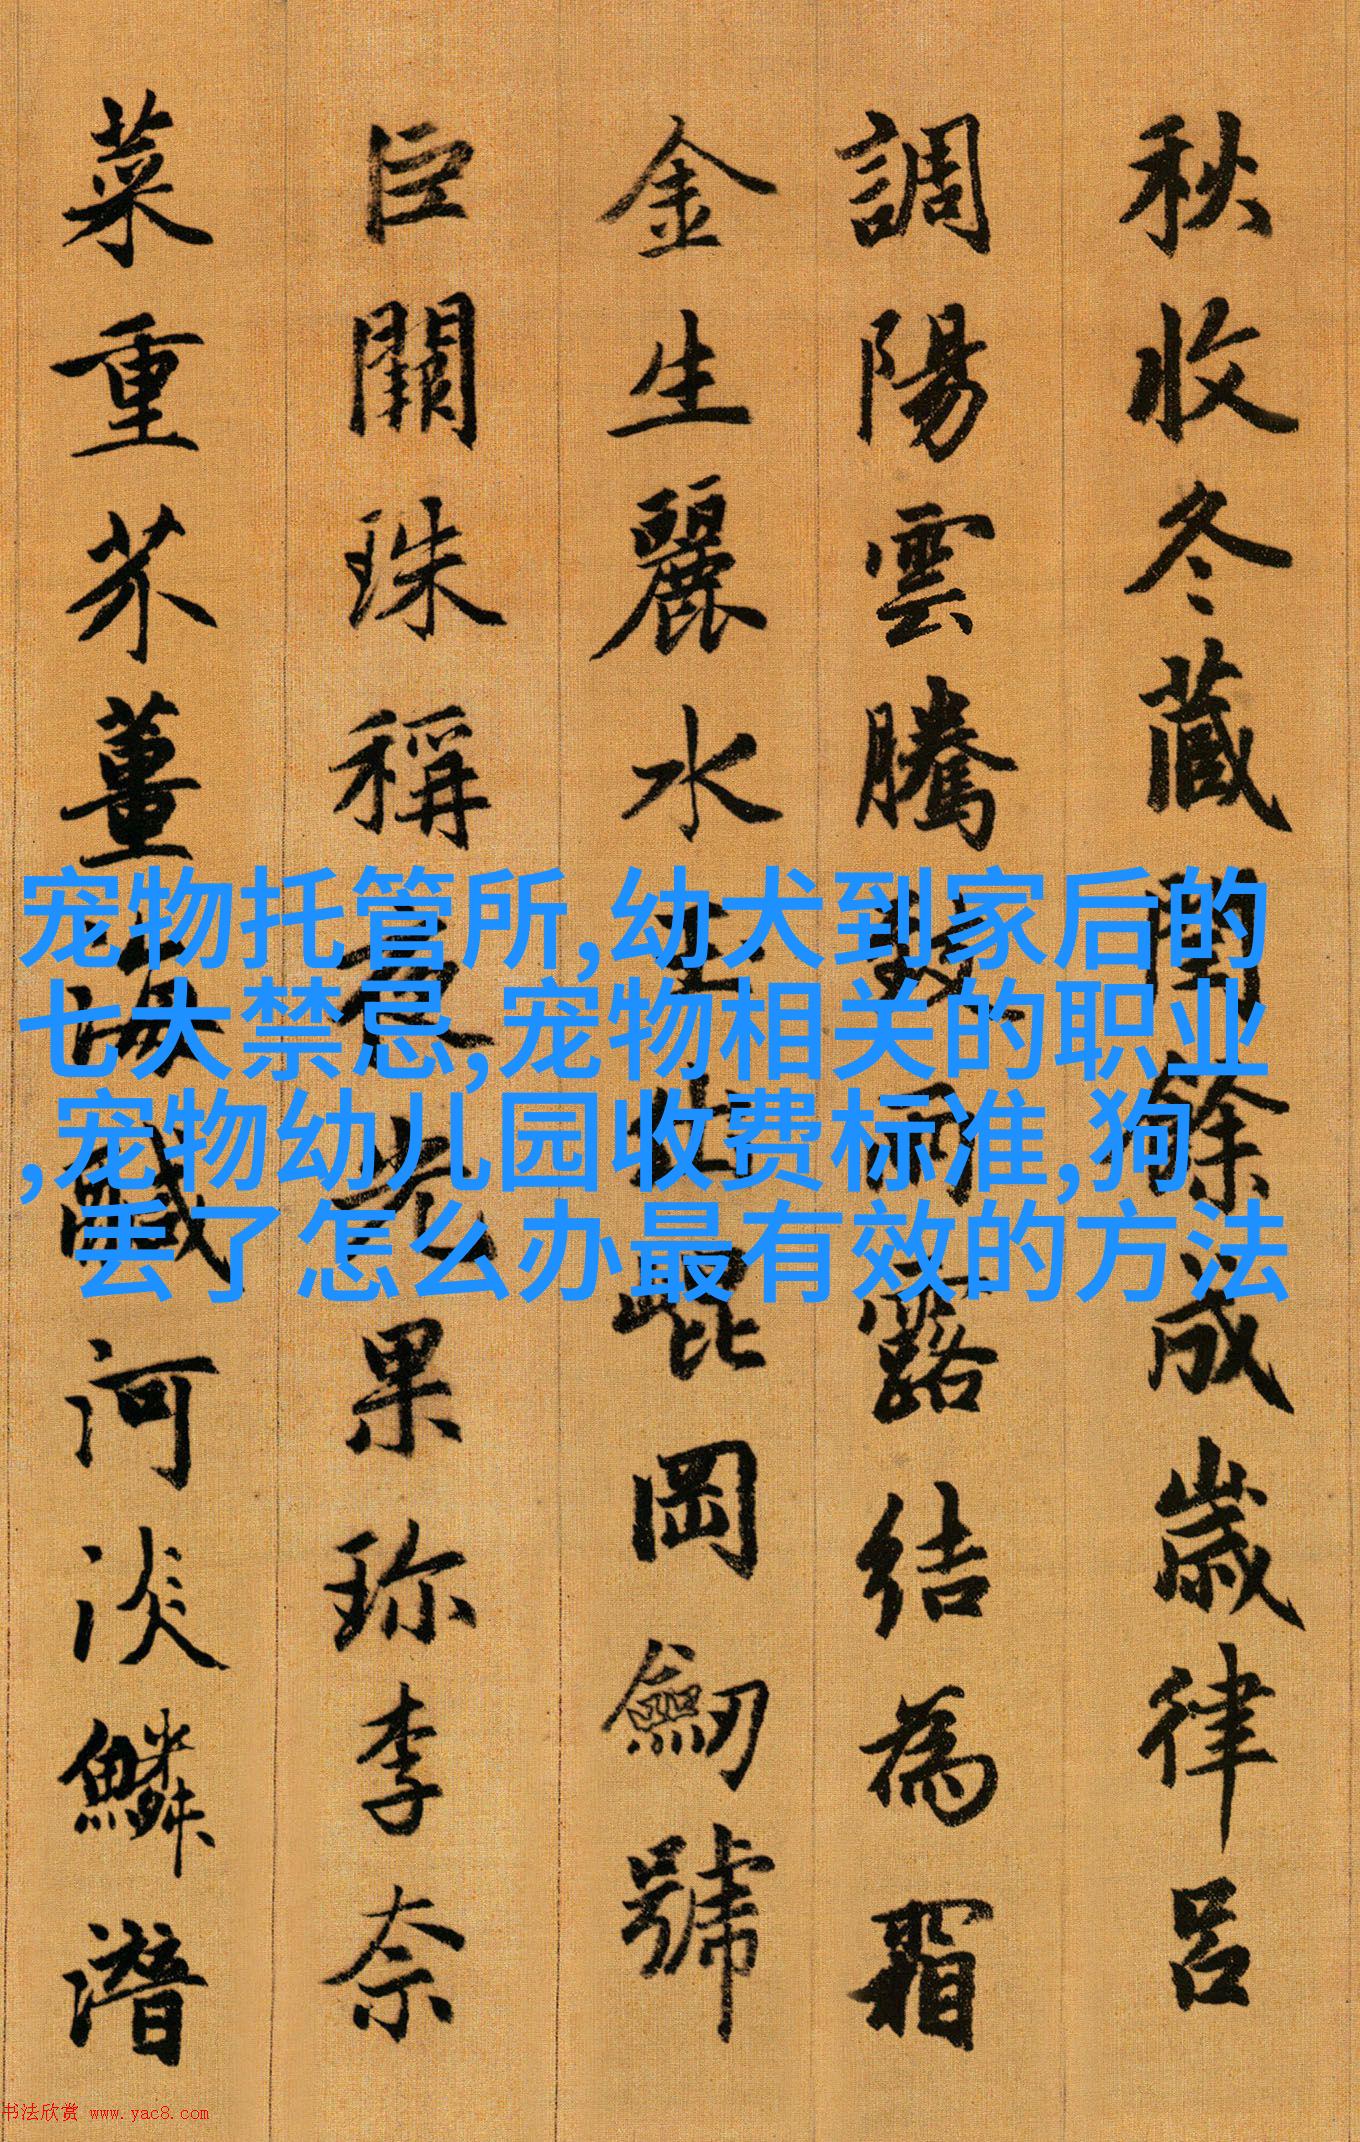 秋收冬藏閏餘成歲律呂
調陽雲騰致雨露結為霜
金生麗水玉出崑岡劒號
巨闕珠稱夜光果珍李奈
菜重芥薑海鹹河淡鱗潛
宠物托管所,幼犬到家后的
七大禁忌,宠物相关的职业
,宠物幼儿园收费标准,狗
丢了怎么办最有效的方法
书法欣赏 www.yac8.com